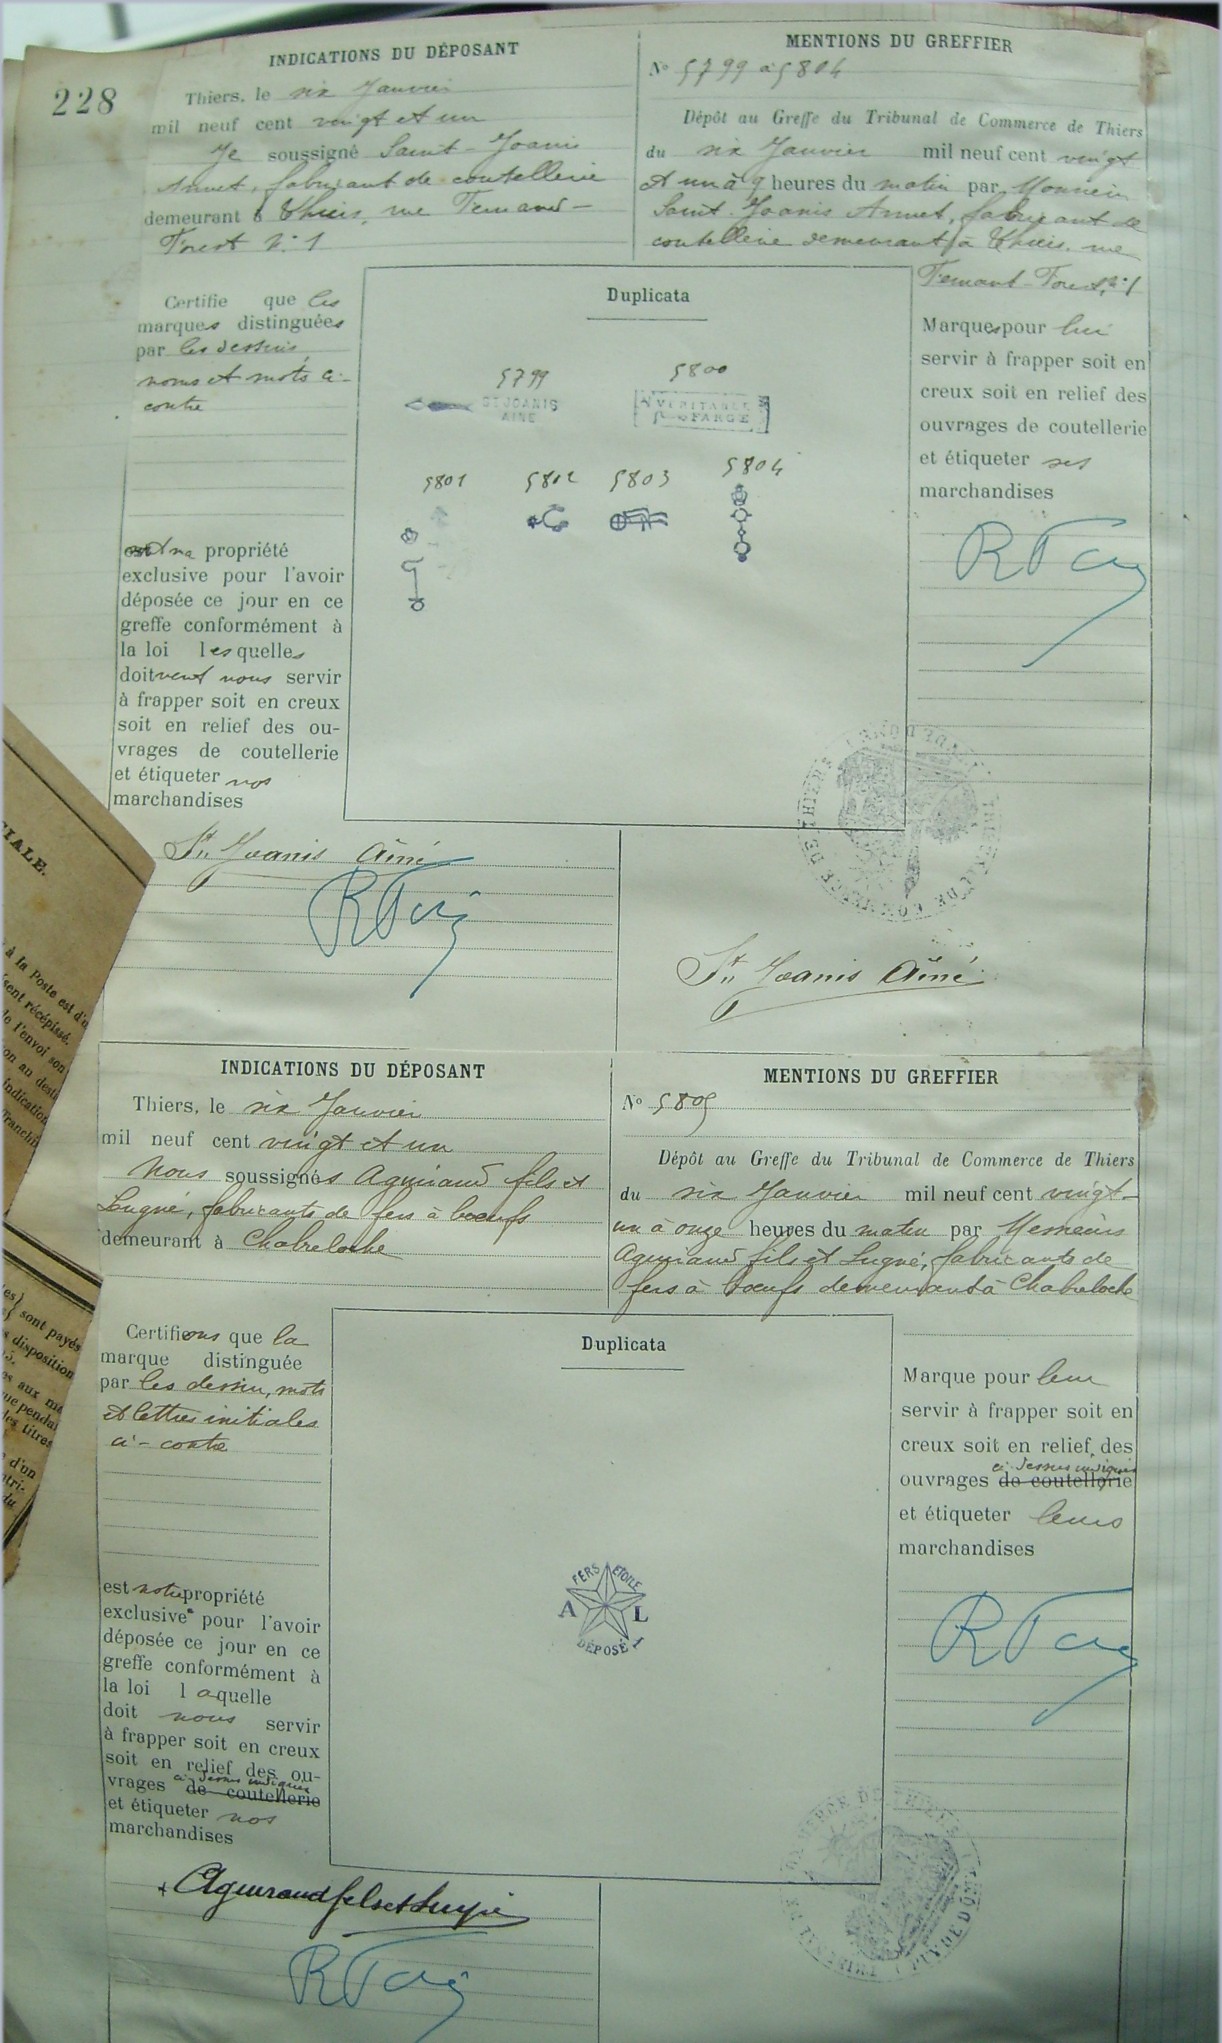 228
INDICATIONS DU DÉPOSANT
Thiers, le six Janvier
mil neuf cent vingt et un
Je soussigné Saint-Joanis
Annet, fabricant de coutellerie
demeurant à Thiers, rue
N° 1
MENTIONS DU GREFFIER
N° 5799 à 5804
Dépôt au Greffe du Tribunal de Commerce de Thiers
du six Janvier mil neuf cent vingt
et un à 9 heures du matin par Monsieur
Saint-Joanis Annet, fabricant de
coutellerie demeurant à Thiers, rue
N° 1
Certifie que les
marques distinguées
par les dessins,
noms et mots ci-
contre
propriété
exclusive pour l'avoir
déposée ce jour en ce
greffe conformément à
la loi lesquelles
doivent nous servir
à frapper soit en creux
soit en relief des ou-
vrages de coutellerie
et étiqueter nos
marchandises
Duplicata
5799
5800
ST JOANIS
AINÉ
VERITABLE
FARGE
5801
5802
5803
5804
Marques pour lui
servir à frapper soit en
creux soit en relief des
ouvrages de coutellerie
et étiqueter ses
marchandises
St Joanis Aîné
St Joanis Aîné
INDICATIONS DU DÉPOSANT
Thiers, le six Janvier
mil neuf cent vingt et un
Nous soussignés fils et
Lugné, fabricants de fers à boeufs
demeurant à Chabreloche
MENTIONS DU GREFFIER
N° 5805
Dépôt au Greffe du Tribunal de Commerce de Thiers
du six Janvier mil neuf cent vingt-
un à onze heures du matin par Messieurs
fils et Lugné, fabricants de
fers à boeufs demeurant à Chabreloche
Certifions que la
marque distinguée
par les dessin, mots
et lettres initiales
ci-contre
est notre propriété
exclusive pour l'avoir
déposée ce jour en ce
greffe conformément à
la loi laquelle
doit nous servir
à frapper soit en creux
soit en relief des ou-
ci dessus indiqués
vrages de coutellerie
et étiqueter nos
marchandises
Duplicata
FERS ETOILE
A L
DÉPOSÉ
Marque pour leur
servir à frapper soit en
creux soit en relief des
ci dessus indiqués
ouvrages de coutellerie
et étiqueter leurs
marchandises
IALE.
à la Poste est
récépissé.
de l'envoi son
indication
sont payés
disposition